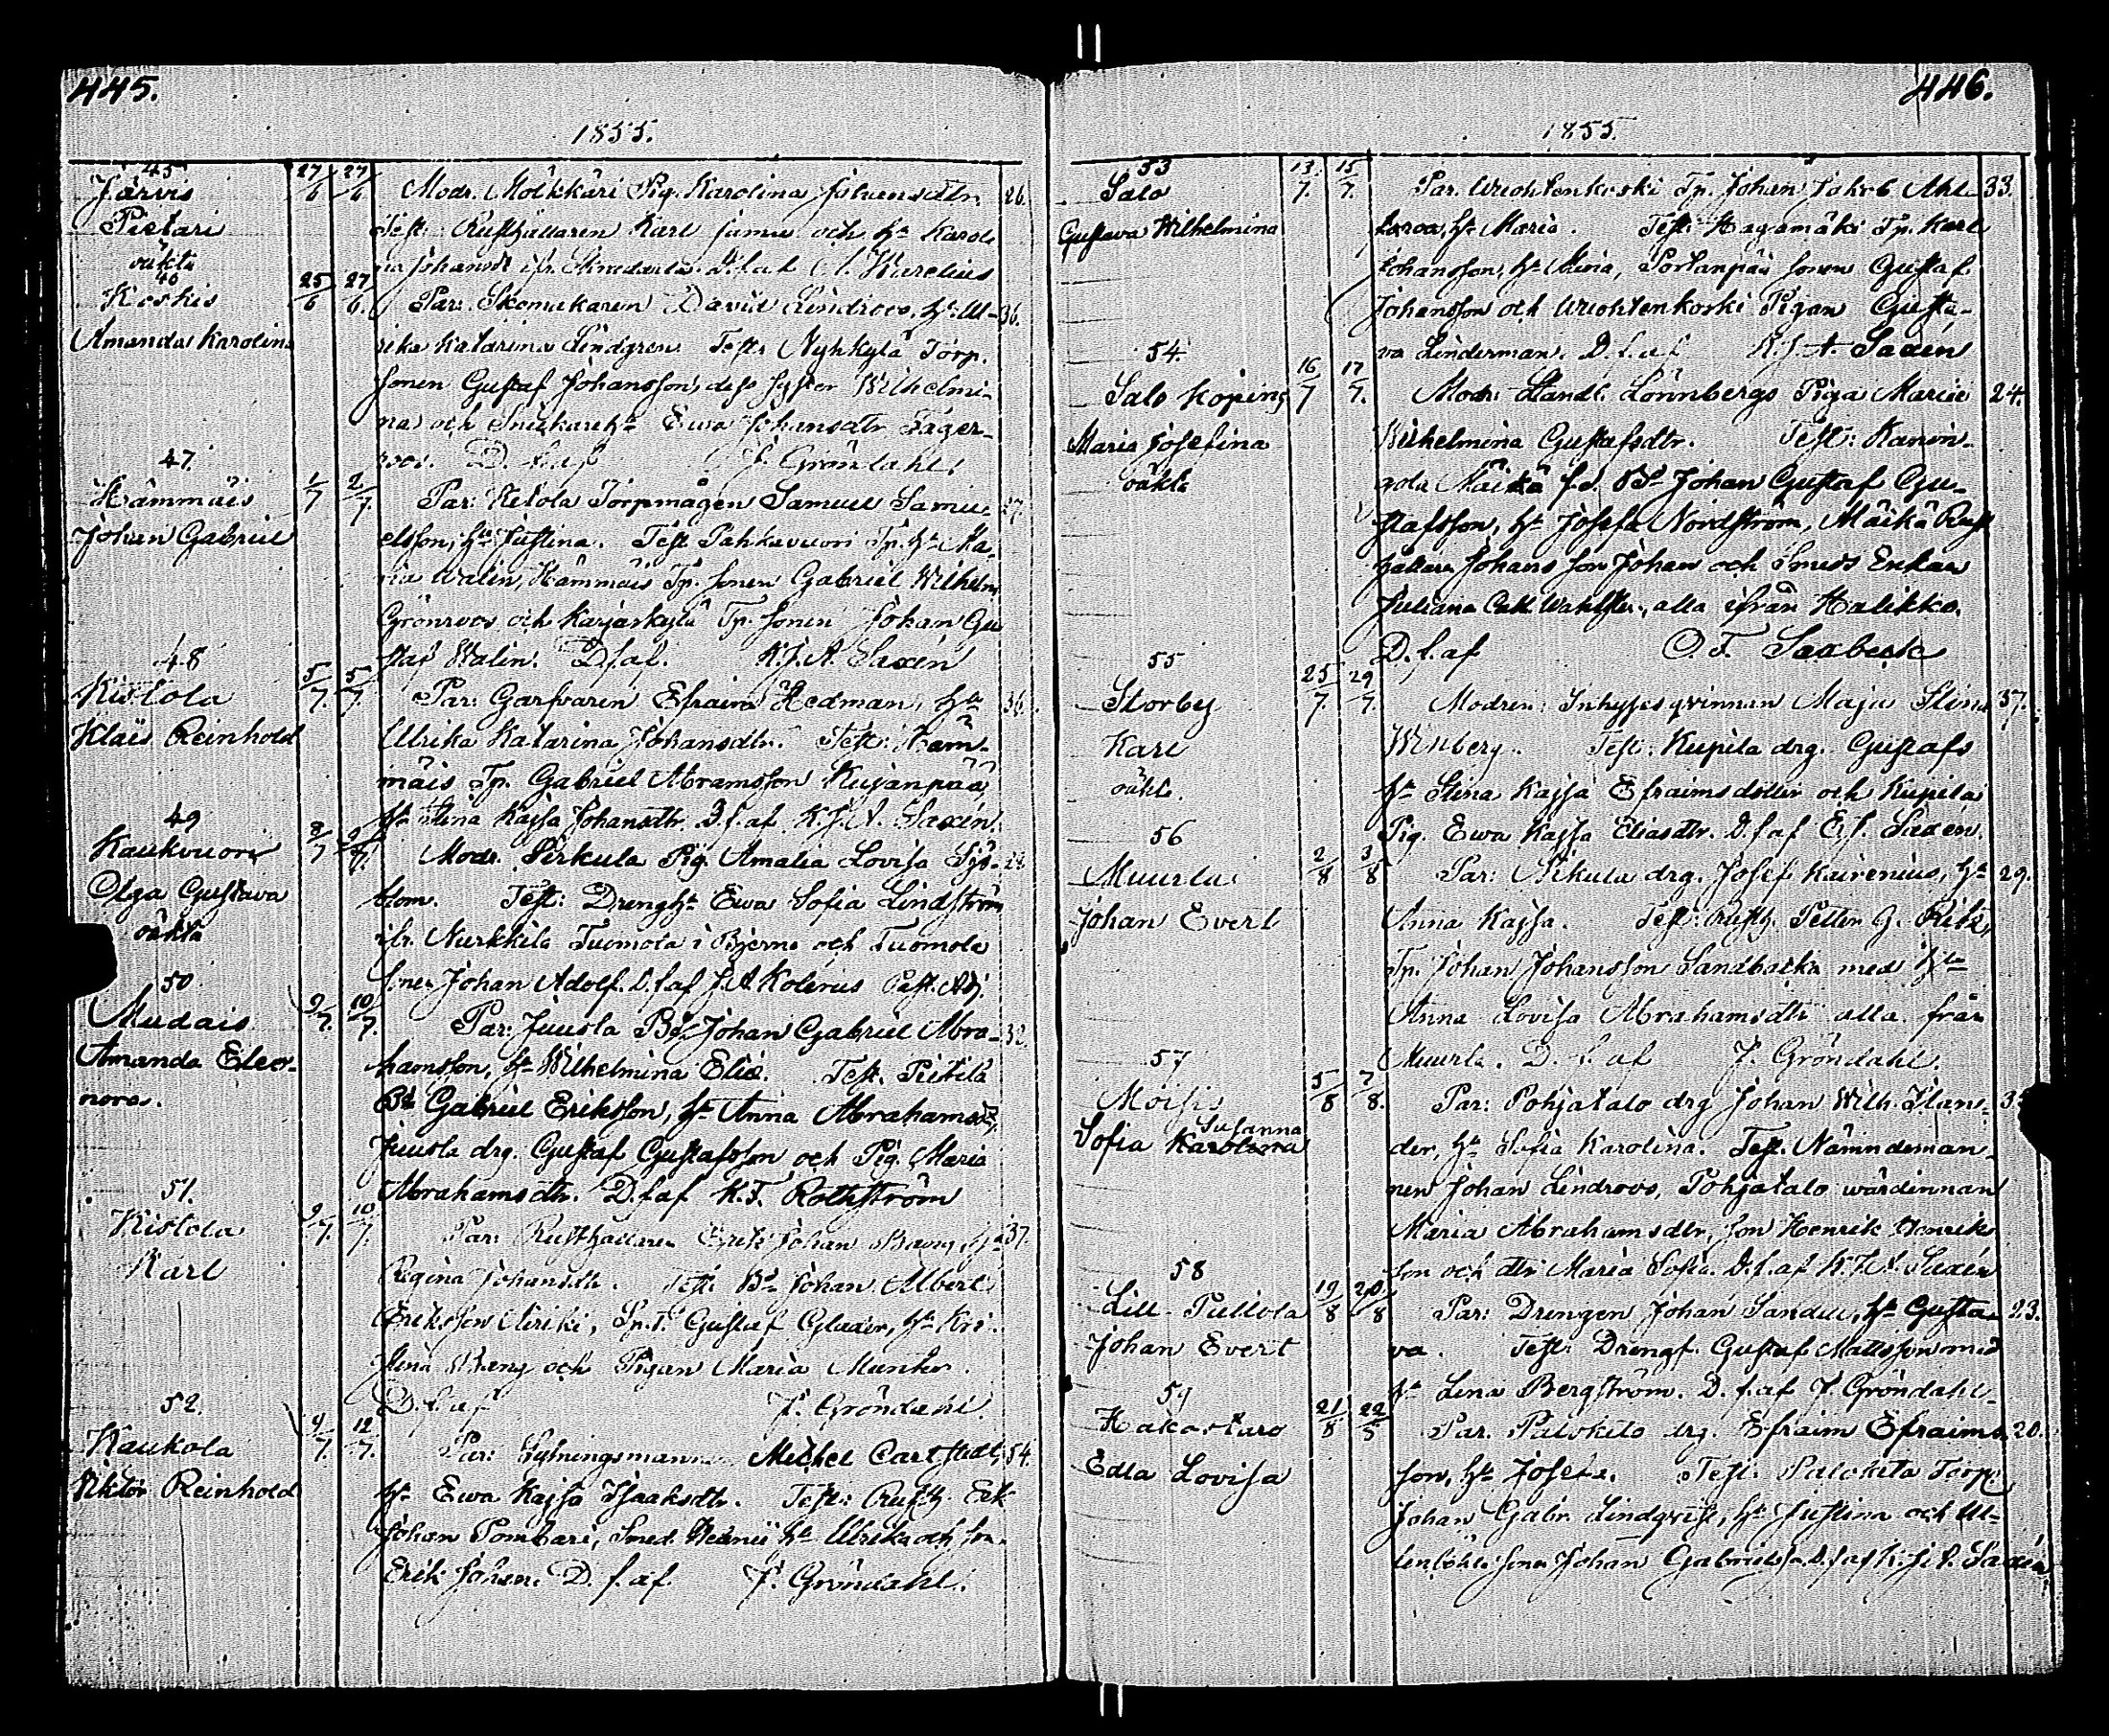 445.
1855.
45
Järvis
Pietari
oäkta
27/6 27/6
Modr. Mölkkäri Pig. Karolina
26.
Test: Rusthållaren Karl och h:u Karoli
na Johansdtr D.f.af Karelius
46
Koskis
Amanda Karolina
25/6 27/6.
Par: Skomakaren David Lindroos, h:u Ul-
36.
rika Katarina Lindgren. Test: Nyhkylä Torp.
sonen Gustaf Johansson, dess syster Wilhelmi-
na och Snickareh:u Ewa Johansdtr Lager-
roos. D. f. af J. Gröndahl.
47.
Hämmäis
Johan Gabriel
1/7 2/7.
Par: Ketola Torpmågen Samuel Samu-
27.
elsson, h:u Justina. Test Pahkavuori Tp. h:u Ma-
ria Walin, Hämmäis Tp. sonen Gabriel Wilhelm
Grönroos och Karjaskylä Tp. sonen Johan Gu
staf Walin. D.f.af. K.J.A. Saxén
48
Kistola
Klais Reinhold
5/7. 5/7.
Par: Garfvaren Efraim Hedman, h:u
36.
Ulrika Katarina Johansdtr. Test: Häm-
mäis Tp. Gabriel Abramsson Kujanpää,
h:u Stina Kajsa Johansdtr. D.f.af K.J.A. Saxén.
49
Kaukvuori
Olga Gustava
oäkta
8/7 9/7.
Modr. Sirkula Pig. Amalia Lovisa Sjö-
blom. Test: Drengh:u Ewa Sofia Lindström
ifr. Nurkkila Tuomola i Bjerno och Tuomola
sonen Johan Adolf. D.f.af J.A. Kolerus Past. Adj.
50.
Mudais
Amanda Eleo-
nora.
9/7. 10/7.
Par: Juusla Bd. Johan Gabriel Abra-
32.
hamsson, h:u Wilhelmina Elis. Test. Pietilä
Bd. Gabriel Eriksson, h:u Anna Abrahamsdtr,
Juusla drg. Gustaf Gustafsson och Pig. Maria
Abrahamsdtr. D.f.af K.F. Rothström
51.
Kistola
Karl
9/7. 10/7.
Par: Rusthållaren Erik Johan Braeng, h:u
37.
Regina Johansdtr. Test: Bd. Johan Albert
Eriksson Niriki, Gustaf Glader, h:u Kri
stina Braeng och Pigan Maria Munter.
D.f.af J. Gröndahl.
52.
Kaukola
Viktor Reinhold
9/7. 12/7.
Par: Michel Carlstedt,
54.
h:u Ewa Kajsa Isaaksdtr. Test: Rusth. Erik
Johan Pombari, Smed. h:u Ulrika och son
Erik Johan. D. f. af. J. Gröndahl.
446.
1855
53
Salo
Gustava Wilhelmina
13/7. 15/7.
Par. Wuohtenkoski Tp. Johan Jakob Ahl
33.
h:u Maria. Test: Hagamäki Tp. Karl
Johansson, h:u Mina, Portanpää sonen Gustaf
Johansson och Wuohtenkoski Pigan Gusta-
va Linderman. D.f.af K.J.A. Saxén
54
Salo Köping
Maria Josefina
oäkta
16/7 17/7.
Modr: Handl. Lönnbergs Piga Maria
24.
Wilhelmina Gustafsdtr. Test: Kanun-
gola Märkä f.d. Bd. Johan Gustaf Gu-
stafsson, h:u Josefa Nordström, Märkä Rust
hållare Johans son Johan och Smeds Enkan
Juliana Cath. Wahlsten, alla ifrån Halikko.
D.f.af O.F. Saxbeck
55
Storby
Karl
oäkta.
25/7. 29/7.
Modren: Inhyses qvinnan Maja Stina
37.
Winberg. Test: Kupila drg. Gustafs
h:u Stina Kajsa Efraimsdotter och Kupila
Pig. Ewa Kajsa Eliasdtr. D.f.af E.J. Saxén.
56
Muurla
Johan Evert
2/8 3/8
Par: Nikula drg. Josef Kairenius, h:u
29.
Anna Kajsa. Test: Rusth. Petter G. Ritz,
Tp. Johan Johansson Sandbacka med h:u
Anna Lovisa Abrahamsdtr alla från
Muurla. D.f.af J. Gröndahl.
57
Moisio
Susanna
Sofia Karolina
5/8 7/8.
Par: Pohjatalo drg Johan Wilh. Ilan-
der, h:u Sofia Karolina. Test. Nämndeman-
nen Johan Lindroos, Pohjatalo wärdinnan
Maria Abrahamsdtr, son Henrik Henriks
son och dtr Maria Sofia. D.f.af K.J.A. Saxén
58
Lill- Pullola
Johan Evert
19/8 20/8
Par: Drengen Johan Sandell, h:u Gusta-
23.
va. Test: Drengf. Gustaf Mattsson med
h:u Lena Bergström. D.f.af J. Gröndahl
59
Hakostaro
Edla Lovisa
21/8 22/8
Par. Palokito drg. Efraim Efraims
20.
son, h:u Josefa. Test: Palokita Torp.
Johan Gabr. Lindqvist, h:u Justina och
sonen Johan Gabrielss. D.f.af K.J.A. Saxén